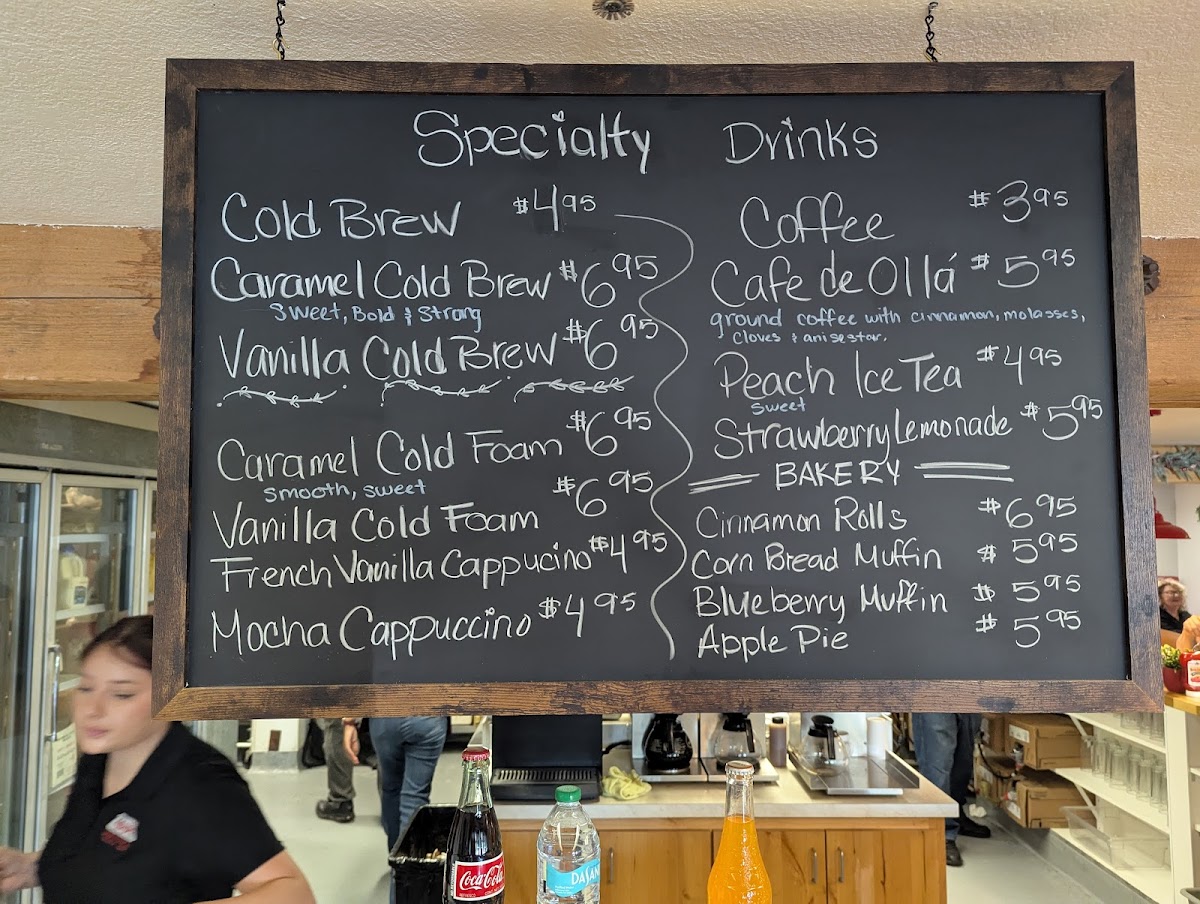 Specialty Drinks
Cold Brew $4.95
Caramel Cold Brew $6.95
Sweet, Bold & Strong
Vanilla Cold Brew $6.95
Caramel Cold Foam $6.95
smooth, sweet
Vanilla Cold Foam $6.95
French Vanilla Cappucino $4.95
Mocha Cappuccino $4.95
Coffee $3.95
Cafe de Ollá $5.95
ground coffee with cinnamon, molasses,
cloves & anise star.
Peach Ice Tea $4.95
sweet
Strawberry Lemonade $5.95
BAKERY
Cinnamon Rolls $6.95
Corn Bread Muffin $5.95
Blueberry Muffin $5.95
Apple Pie $5.95
Coca-Cola
DASANI